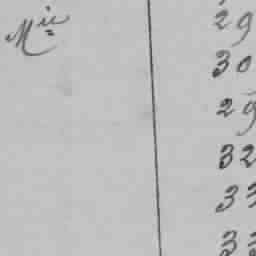 Mie
29
30
29
32
33
33